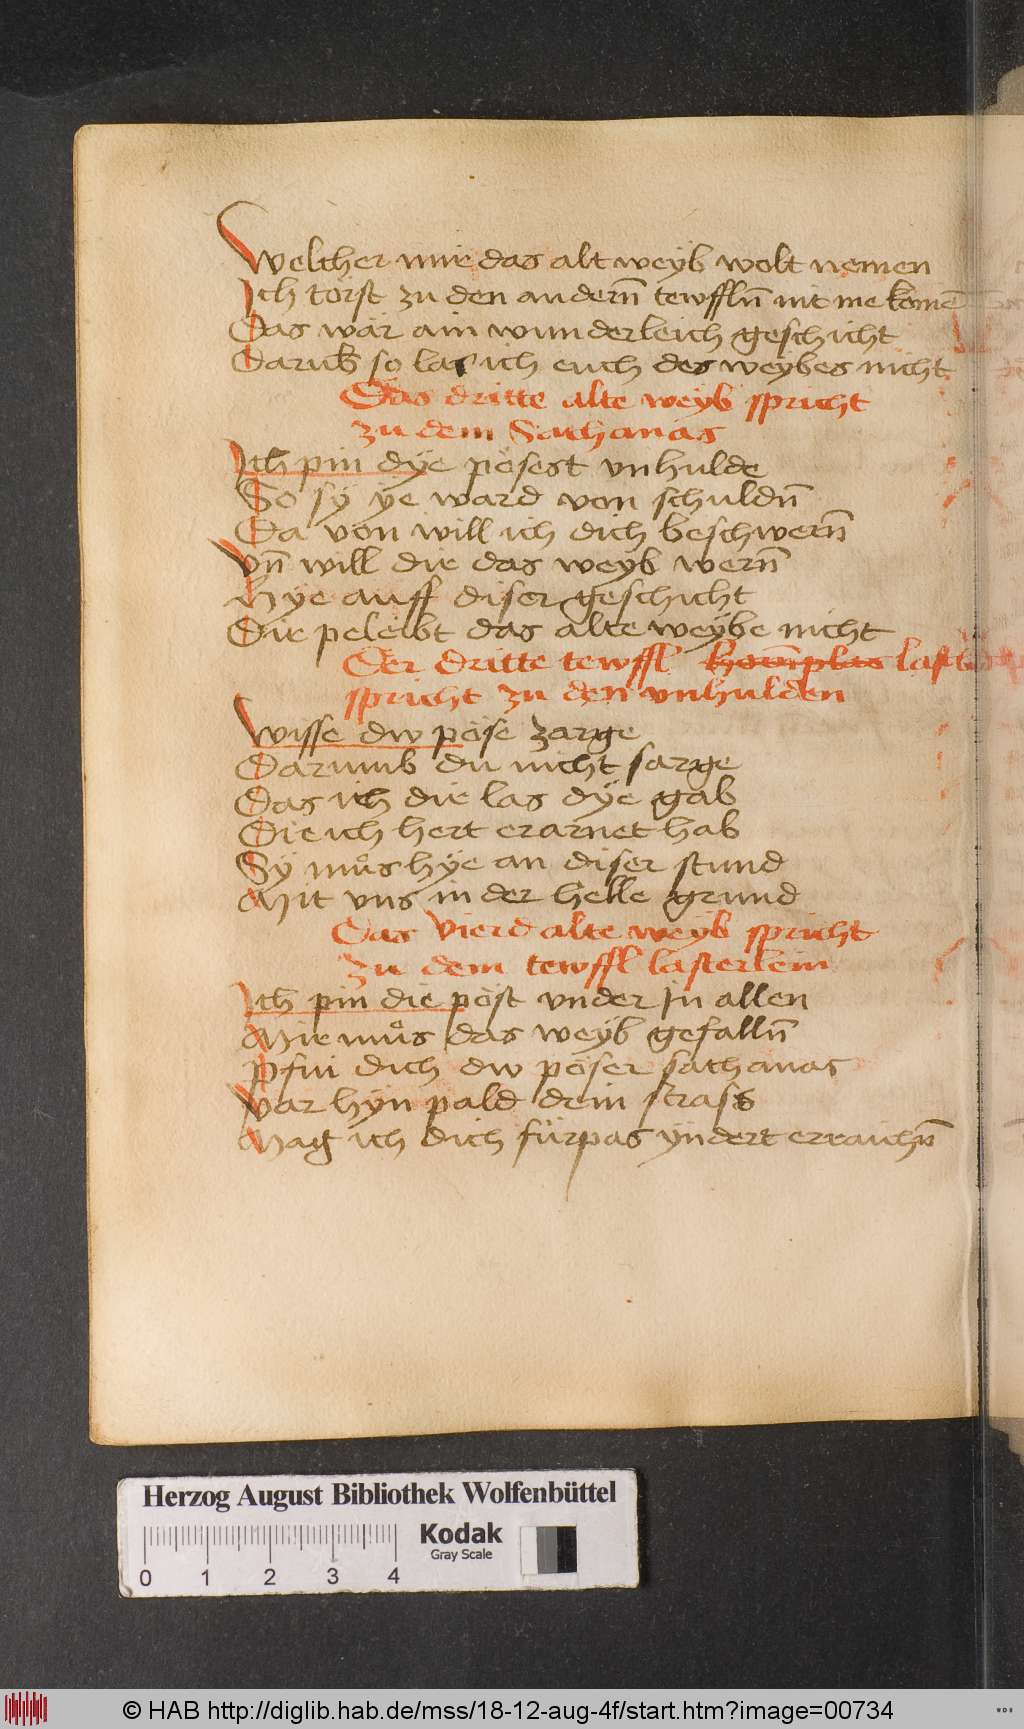 Welcher mir das alt weyb wolt nemen
Ich törst zu den andern̄ tewffln̄ nit me komē
Das wär ain wunderleich geschicht
Darub so las ich euch des weybes nicht
Das dritte alte weyb spricht
zu dem Sathanas
Ich pin dÿe pösest vnhulde
So sÿ ÿe ward von schuldn̄
Da von will ich dich beschwern̄
Vn̄ will die das weyb wern̄
Hÿe auff diser geschicht
Die peleibt das alte weybe nicht
Der dritte tewffl
spricht zu den vnhulden
Wisse dw pöse zarge
Darumb du nicht sarge
Das ich die las dÿe gab
Die ich hert erarnet hab
Sÿ můs hÿe an diser stund
Mit vns in der helle grund
Das vierd alte weyb spricht
zu dem tewffl lasterlein
Ich pin die pöst vnder in allen
Mir můs das weyb gefalln̄
Pfui dich dw pöser sathanas
Var hÿn pald dein strass
Mag ich dich fürpas ÿndert erraichn̄
Herzog August Bibliothek Wolfenbüttel
Kodak
Gray Scale
0 1 2 3 4
© HAB http://diglib.hab.de/mss/18-12-aug-4f/start.htm?image=00734